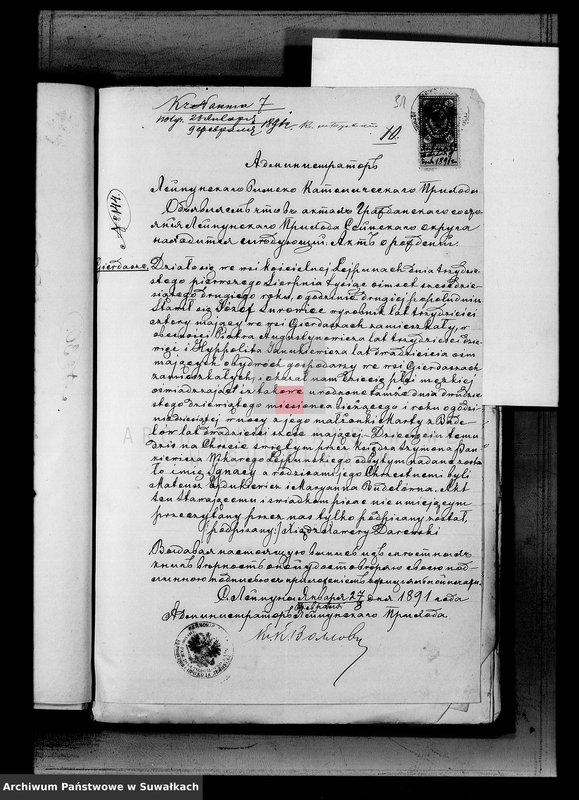 Къ Аннта 7
получ. 26 Января 1891 г.
9 Февраля
10.
31
Администраторъ
Лейпунскаго Римско Католическаго Прихода
Объявляетъ что въ актахъ Гражданскаго состо-
янія Лейпунскаго Прихода Сейнскаго округа
находится слѣдующій Актъ о рожденіи.
№ 144.
Gierdasze.
Działo się we wsi kościelnej Lejpunach dnia trzydzie-
stego pierwszego Sierpnia tysiąc ośmset sześćdzie-
siątego drugiego roku, o godzinie drugiej po południu
Stawił się Józef Surowiec wyrobnik lat trzydzieści
cztery mający we wsi Gierdaszach zamieszkały, w
obecności Piotra Augustynowicza lat trzydzieści dzie-
więć i Hyppolita Janukiewicza lat dwadzieścia ośm
mających obydwóch gospodarzy we wsi Gierdaszach
zamieszkałych, i okazał nam Dziecię płci męzkiej
oświadczając iż takowe urodzone tamże dnia dwudzie-
stego dziewiątego miesiąca bieżącego i roku o godzi-
nie dziesiątej w nocy z jego małżonki Marty z Bude-
lów lat dwadzieści sześć mającej. Dziecięciu temu
dziś na Chrzcie świętym przez Księdza Szymona Jan-
kiewicza Wikarego Lejpuńskiego odbytym nadane zosta-
ło imię Ignacy a rodzicami jego Chrzestnemi byli
Mateusz Ejdukiewicz i Maryanna Budelówna. Akt
ten Stawającemu i świadkom pisać nieumiejącym
przeczytany przez nas tylko podpisany został,
/podpisany:/ Xiądz Xawery Darewski
Выдавая настоящую выпись изъ метическихъ
книгъ вѣрность оной удостовѣряю своею под-
писью съ приложеніемъ официальной печати.
О. Лейпуны Января 27 дня 1891 года
Февраля 8
Администраторъ Лейпунскаго Прихода
Archiwum Państwowe w Suwałkach